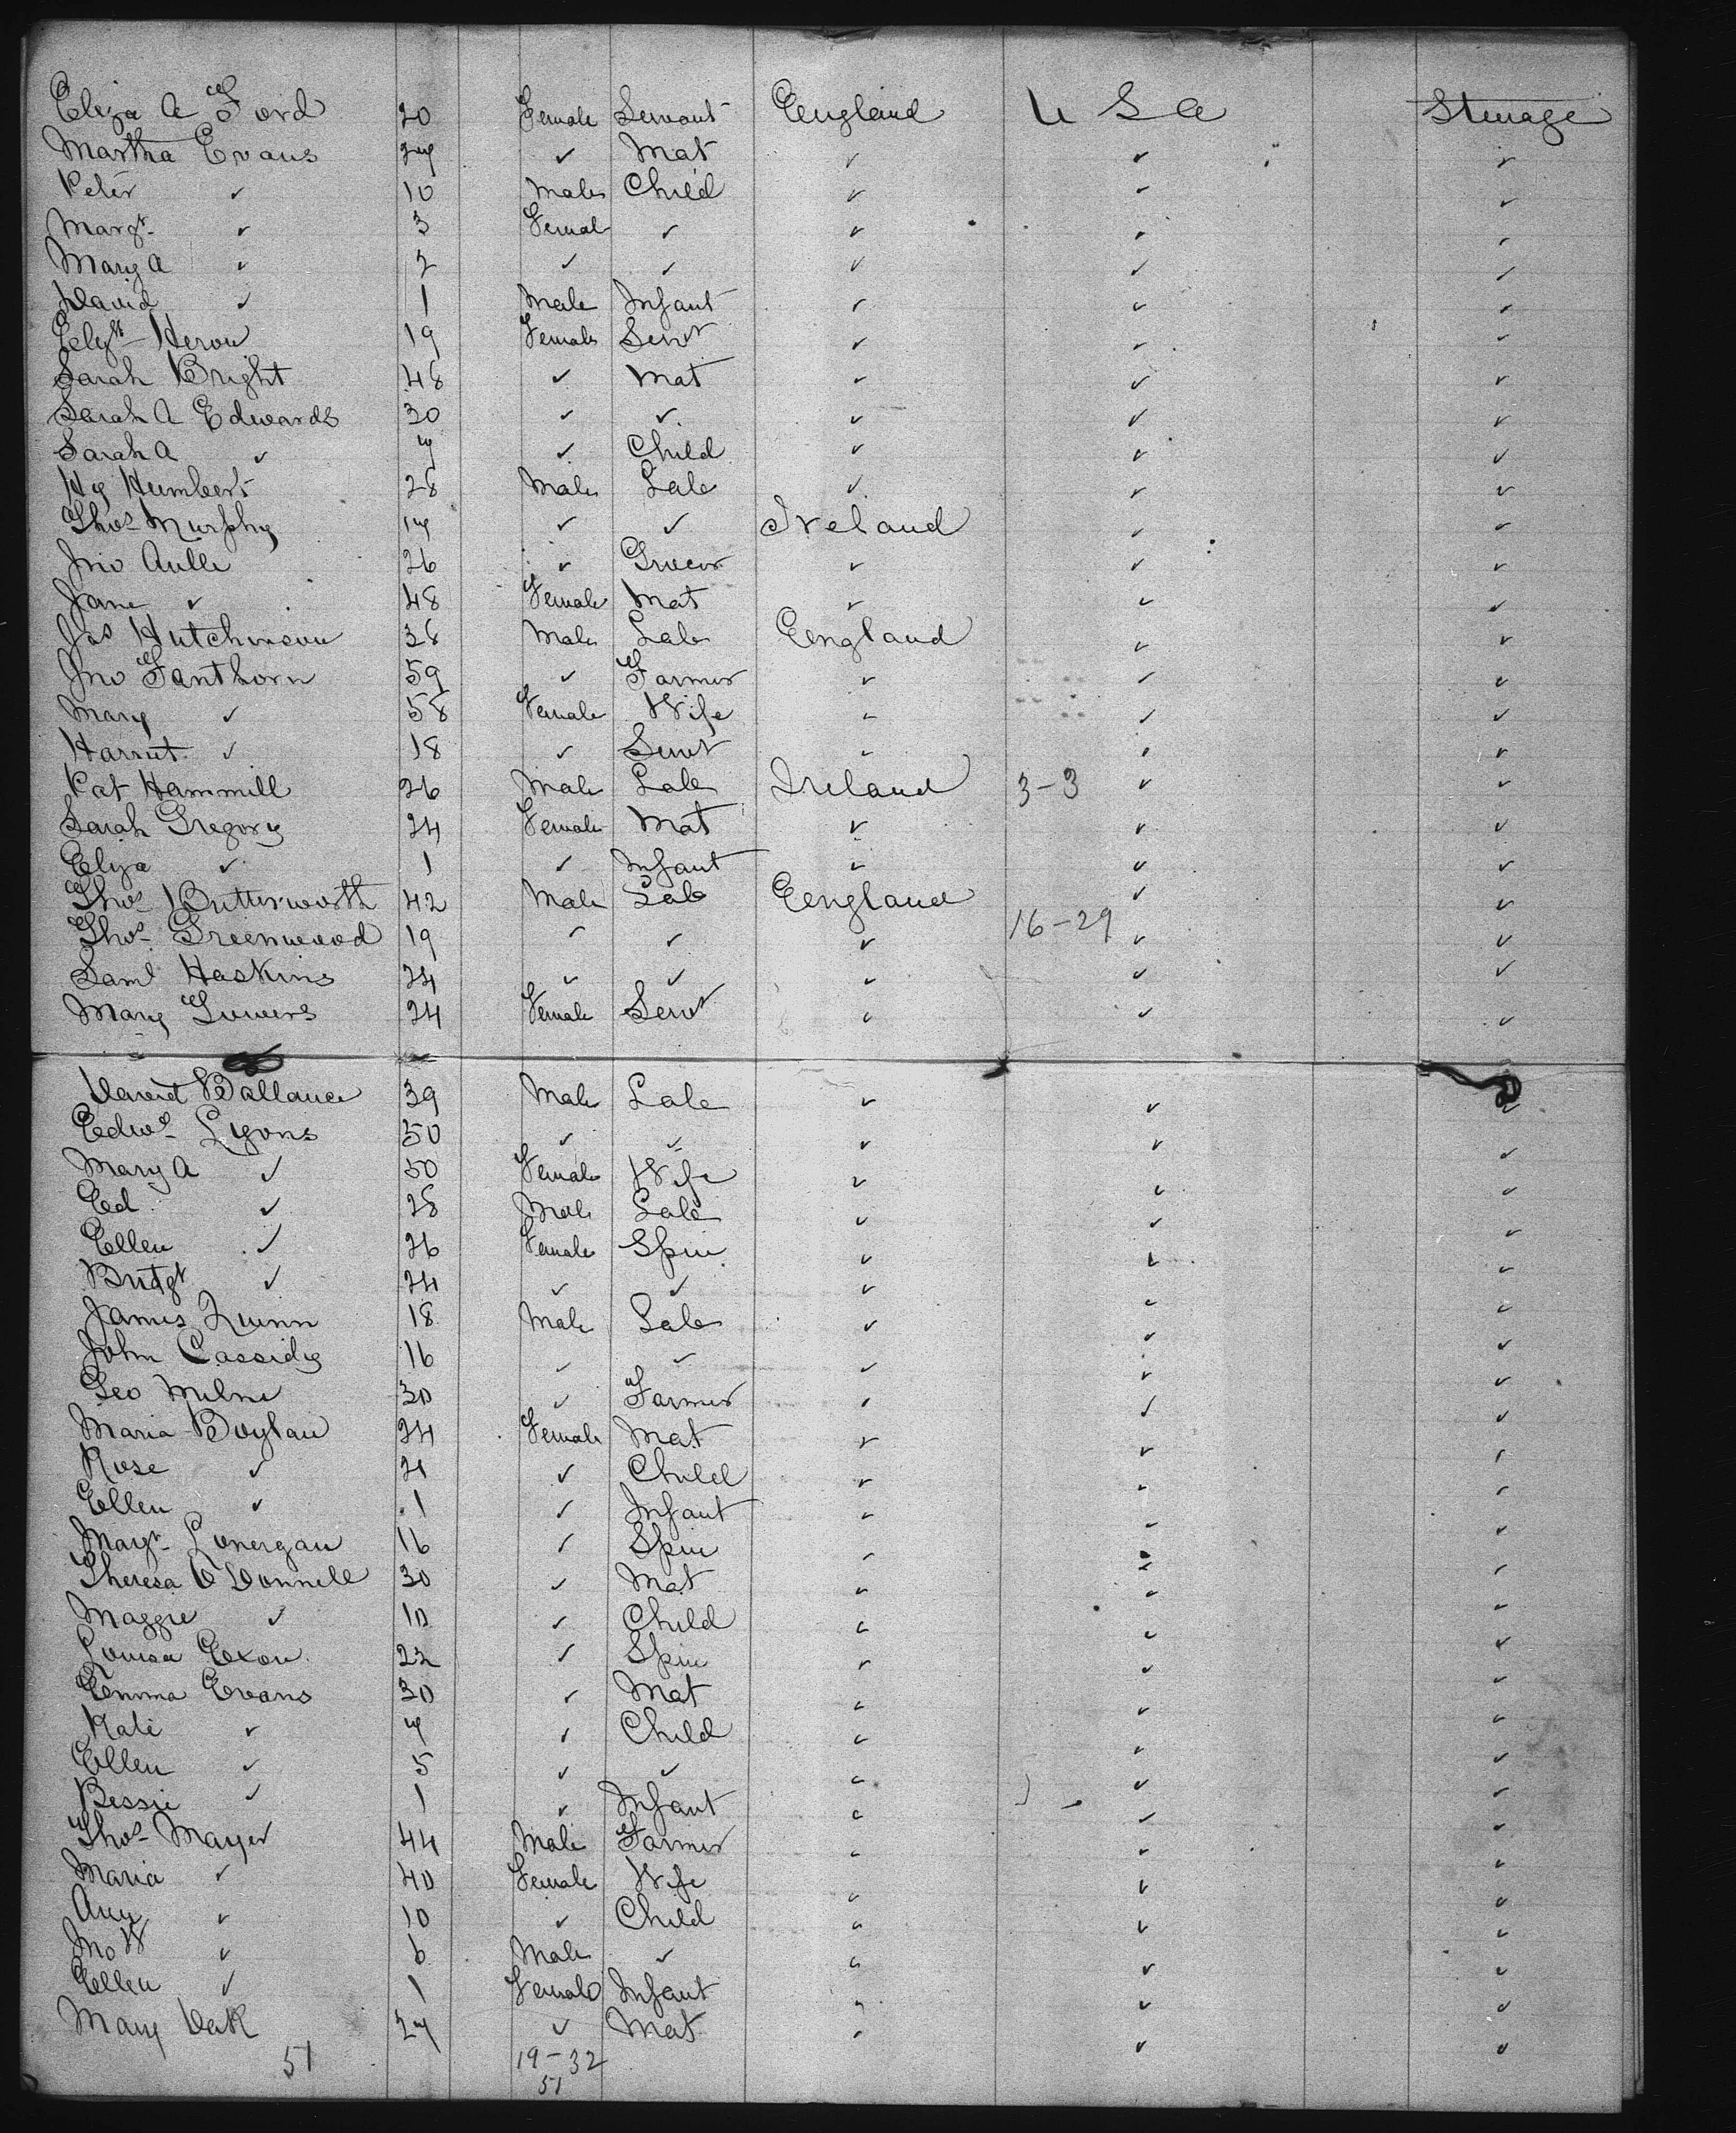 Eliza A Ford 20 Female Servant England U S A Steerage
Martha Evans 27 ✓ Mat ✓ ✓ ✓
Peter ✓ 10 Male Child ✓ ✓ ✓
Margt ✓ 3 Female ✓ ✓ ✓ ✓
Mary A ✓ 2 ✓ ✓ ✓ ✓ ✓
David ✓ 1 Male Infant ✓ ✓ ✓
Elizth Heron 19 Female Servt ✓ ✓ ✓
Sarah Bright 48 ✓ Mat ✓ ✓ ✓
Sarah A Edwards 30 ✓ ✓ ✓ ✓ ✓
Sarah A ✓ 7 ✓ Child ✓ ✓ ✓
Hy Humbert 28 Male Lab ✓ ✓ ✓
Thos Murphy 17 ✓ ✓ Ireland ✓ ✓
Jno 26 ✓ Grocer ✓ ✓ ✓
Jane ✓ 48 Female Mat ✓ ✓ ✓
Jas Hutchinson 38 Male Lab England ✓ ✓
Jno Fanthorn 59 ✓ Farmer ✓ ✓ ✓
Mary ✓ 58 Female Wife ✓ ✓ ✓
Harriet ✓ 18 ✓ Servt ✓ ✓ ✓
Pat Hammill 26 Male Lab Ireland 3-3 ✓ ✓
Sarah Gregory 24 Female Mat ✓ ✓ ✓
Eliza ✓ 1 ✓ Infant ✓ ✓ ✓
Thos Butterworth 42 Male Lab England ✓ ✓
Thos Greenwood 19 ✓ ✓ ✓ 16-29 ✓ ✓
Saml Haskins 24 ✓ ✓ ✓ ✓ ✓
Mary 24 Female Servt ✓ ✓ ✓
David Ballance 39 Male Lab ✓ ✓ ✓
Edwd Lyons 50 ✓ ✓ ✓ ✓ ✓
Mary A ✓ 50 Female Wife ✓ ✓ ✓
Ed ✓ 28 Male Lab ✓ ✓ ✓
Ellen ✓ 26 Female Spin ✓ ✓ ✓
Bridgt ✓ 24 ✓ ✓ ✓ ✓ ✓
James Quinn 18 Male Lab ✓ ✓ ✓
John Cassidy 16 ✓ ✓ ✓ ✓ ✓
Geo Milne 30 ✓ Farmer ✓ ✓ ✓
Maria Boylan 24 Female Mat ✓ ✓ ✓
Rose ✓ ✓ Child ✓ ✓ ✓
Ellen ✓ 1 ✓ Infant ✓ ✓ ✓
Margt Lonergan 16 ✓ Spin ✓ ✓ ✓
Theresa O'Donnell 30 ✓ Mat ✓ ✓ ✓
Maggie ✓ 10 ✓ Child ✓ ✓ ✓
Louisa Exon 22 ✓ Spin ✓ ✓ ✓
Emma Evans 30 ✓ Mat ✓ ✓ ✓
Kate ✓ 7 ✓ Child ✓ ✓ ✓
Ellen ✓ 5 ✓ ✓ ✓ ✓ ✓
Bessie ✓ 1 ✓ Infant ✓ ✓ ✓
Thos Mayer 44 Male Farmer ✓ ✓ ✓
Maria ✓ 40 Female Wife ✓ ✓ ✓
Ann ✓ 10 ✓ Child ✓ ✓ ✓
Jno W ✓ 6 Male ✓ ✓ ✓ ✓
Ellen ✓ 1 Female Infant ✓ ✓ ✓
Mary 27 ✓ Mat ✓ ✓ ✓
51 19-32
51